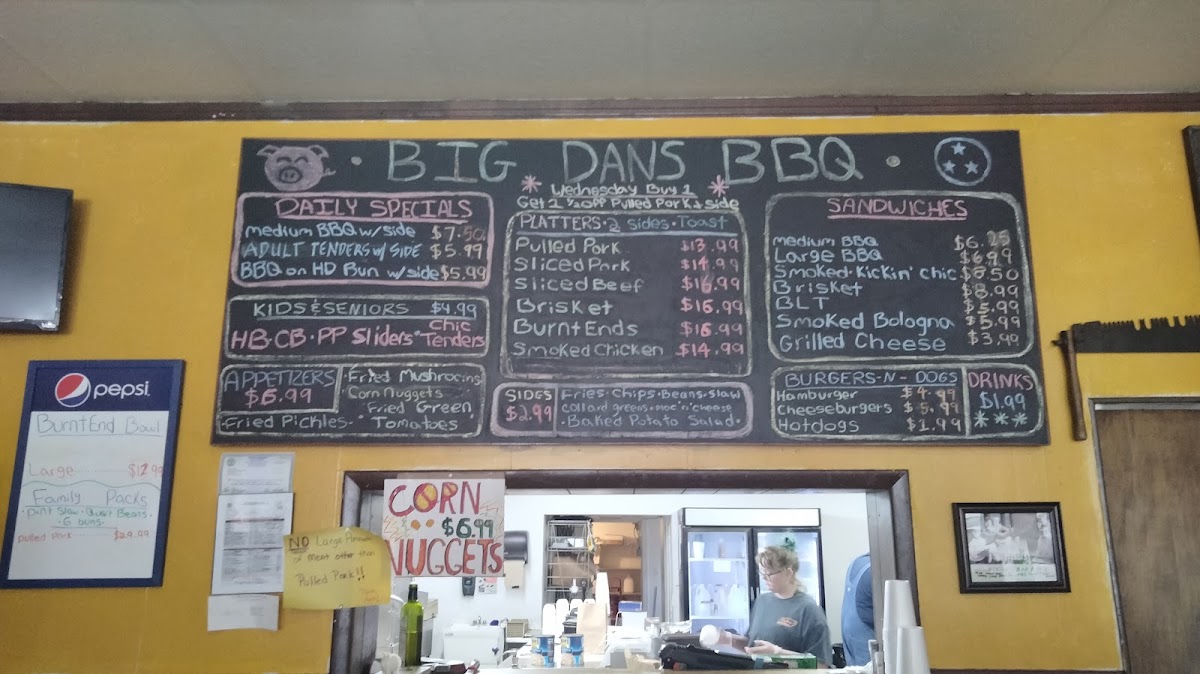 BIG DANS BBQ
DAILY SPECIALS
medium BBQ w/side $7.50
ADULT TENDERS w/ SIDE $5.99
BBQ on HD Bun w/side $5.99
KIDS & SENIORS $4.99
HB·CB·PP Sliders Chic Tenders
APPETIZERS
$6.99
·Fried Mushrooms
·Corn Nuggets
Fried Green
·Fried Pickles· ·Tomatoes
* Wednesday Buy 1 *
Get 1 1/2 OFF Pulled Pork 2 side
PLATTERS·2 sides·Toast
Pulled Pork $13.99
Sliced Pork $14.99
Sliced Beef $16.99
Brisket $16.99
Burnt Ends $16.99
Smoked Chicken $14.99
SIDES
$2.99
Fries·Chips·Beans·Slaw
collard greens·mac'n'cheese
·Baked Potato Salad·
SANDWICHES
medium BBQ $6.25
Large BBQ $6.99
Smoked·Kickin' chic $6.50
Brisket $8.99
BLT $5.99
Smoked Bologna $5.99
Grilled Cheese $3.99
BURGERS-N-DOGS
Hamburger $4.99
Cheeseburgers $5.99
Hotdogs $1.99
DRINKS
$1.99
***
pepsi
Burnt End Bowl
Large $12.99
Family Packs
·pint slaw·Quart Beans·
·6 buns·
pulled pork $29.99
NO Large Amount
of meat other than
Pulled Pork!!
CORN
$6.99
NUGGETS